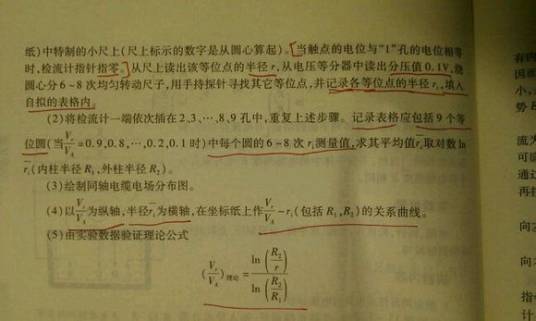 纸)中特制的小尺上(尺上标示的数字是从圆心算起)。当触点的电位与“1”孔的电位相等
时,检流计指针指零。从尺上读出该等位点的半径 r,从电压等分器中读出分压值 0.1V,绕
圆心分 6~8 次均匀转动尺子,用手持探针寻找其它等位点,并记录各等位点的半径 rᵢ,填入
自拟的表格内。
(2)将检流计一端依次插在 2、3、…、8、9 孔中,重复上述步骤。记录表格应包括 9 个等
位圆(当 Vᵣ/V_A = 0.9,0.8,…,0.2,0.1 时)中每个圆的 6~8 次 rᵢ 测量值,求其平均值 r̄ᵢ 取对数 ln
r̄ᵢ(内柱半径 R₁,外柱半径 R₂)。
(3)绘制同轴电缆电场分布图。
(4)以 Vᵣ/V_A 为纵轴,半径 r̄ᵢ 为横轴,在坐标纸上作 Vᵣ/V_A - rᵢ(包括 R₁,R₂)的关系曲线。
(5)由实验数据验证理论公式
(Vᵣ/V_A)理论 = ln(R₂/r) / ln(R₂/R₁)
有
因
小,
势 E
流为
可
通
再
向
向
指
计